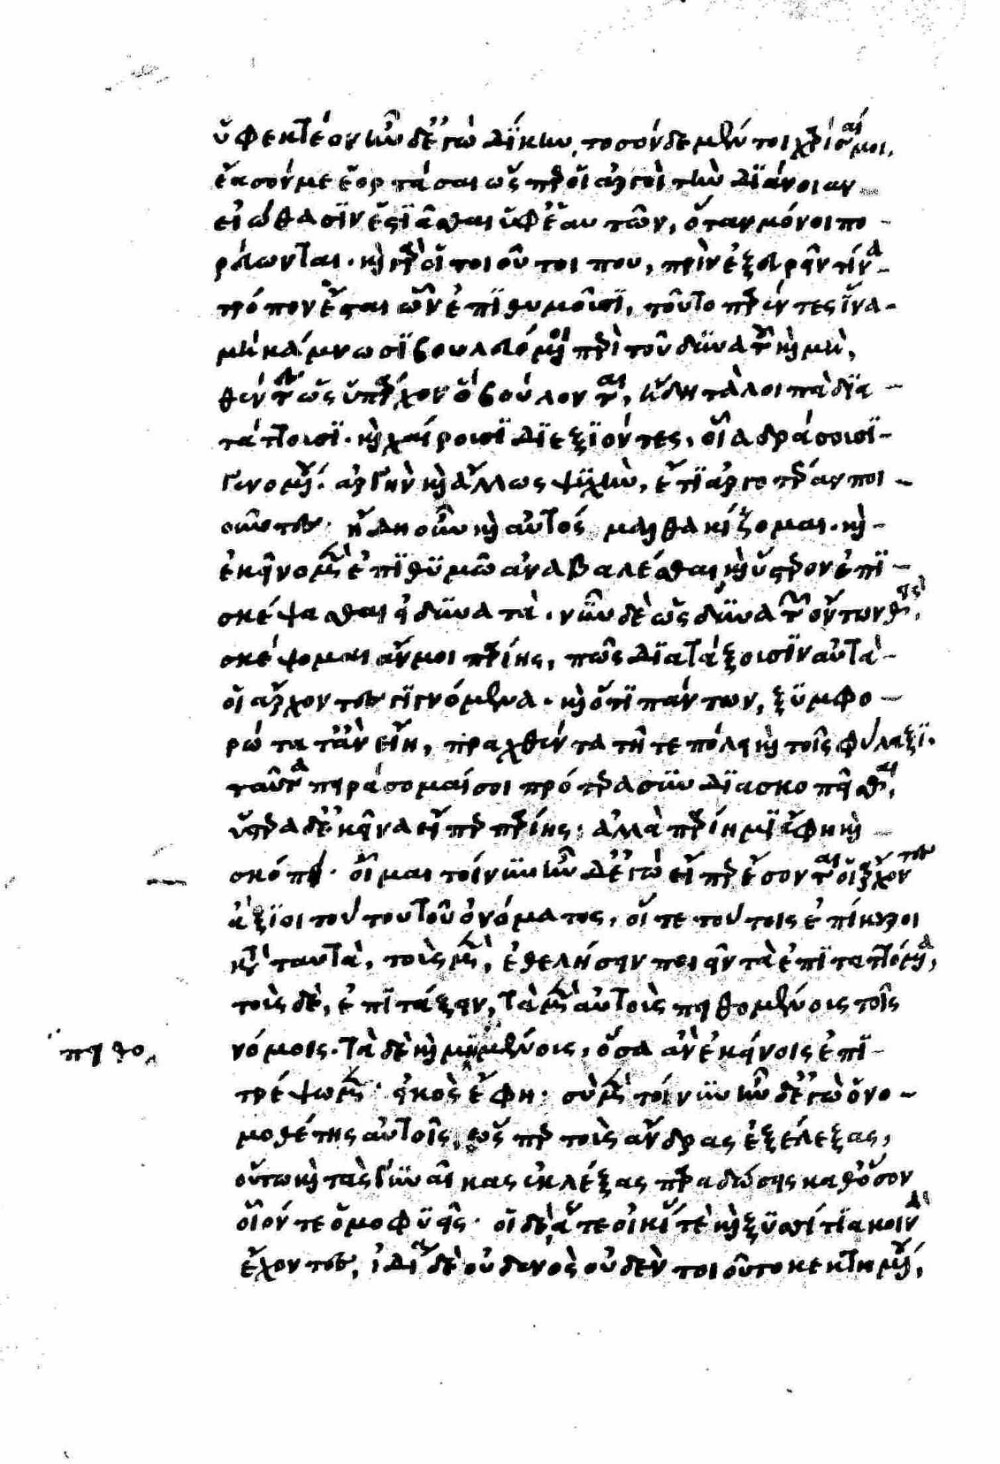 ὑφεκτέον ἦν δ' ἐγὼ δίκην, τοσόνδε μέντοι χάρισαί μοι,
ἔασόν με ἑορτάσαι ὥσπερ οἱ ἀργοὶ τὴν διάνοιαν
εἰώθασιν ἑστιᾶσθαι ὑφ' ἑαυτῶν, ὅταν μόνοι πο-
ρεύωνται. καὶ γὰρ οἱ τοιοῦτοί που, πρὶν ἐξευρεῖν τίνα
τρόπον ἔσται ὧν ἐπιθυμοῦσι, τοῦτο παρέντες ἵνα
μὴ κάμνωσι βουλευόμενοι περὶ τοῦ δυνατοῦ καὶ μὴ,
θέντες ὡς ὑπάρχον ὃ βούλονται, ἤδη τὰ λοιπὰ δια-
τάττουσι. καὶ χαίρουσι διεξιόντες, οἷα δράσουσι
γενομένου. ἀργὴν καὶ ἄλλως ψυχὴν, ἔτι ἀργοτέραν ποι-
οῦντες. ἤδη οὖν καὶ αὐτὸς μαλθακίζομαι. καὶ
ἐκεῖνα μὲν ἐπιθυμῶ ἀναβαλέσθαι καὶ ὕστερον ἐπι-
σκέψασθαι ᾗ δυνατά. νῦν δὲ ὡς δυνατῶν ὄντων θεὶς,
σκέψομαι ἄν μοι παρίης, πῶς διατάξουσιν αὐτὰ
οἱ ἄρχοντες γιγνόμενα. καὶ ὅτι πάντων, ξυμφο-
ρώτατ' ἂν εἴη, πραχθέντα τῇ τε πόλει καὶ τοῖς φύλαξι.
ταῦτα πειράσομαί σοι πρότερα συνδιασκοπεῖσθαι,
ὕστερα δ' ἐκεῖνα εἴπερ παρίης. ἀλλὰ παρίημι ἔφη καὶ
σκόπει. οἶμαι τοίνυν ἦν δ' ἐγὼ εἴπερ ἔσονται οἱ ἄρχοντες
ἄξιοι τούτου τοῦ ὀνόματος, οἵ τε τούτοις ἐπίκουροι
κατὰ ταυτὰ, τοὺς μὲν, ἐθελήσειν ποιεῖν τὰ ἐπιταττόμενα,
τοὺς δὲ, ἐπιτάξειν, τὰ μὲν αὐτοὺς πειθομένους τοῖς
νόμοις. τὰ δὲ καὶ μιμουμένους, ὅσα ἂν ἐκείνοις ἐπι-
πειθο
τρέψωμεν. εἰκὸς ἔφη. σὺ μὲν τοίνυν ἦν δ' ἐγὼ ὁ νο-
μοθέτης αὐτοῖς, ὥσπερ τοὺς ἄνδρας ἐξέλεξας,
οὕτω καὶ τὰς γυναῖκας ἐκλέξας παραδώσεις καθ' ὅσον
οἷόν τε ὁμοφυεῖς. οἱ δὲ, ἅτε οἰκίας τε καὶ ξυσσίτια κοινὰ
ἔχοντες, ἰδίᾳ δὲ οὐδενὸς οὐδὲν τοιοῦτο κεκτημένου,